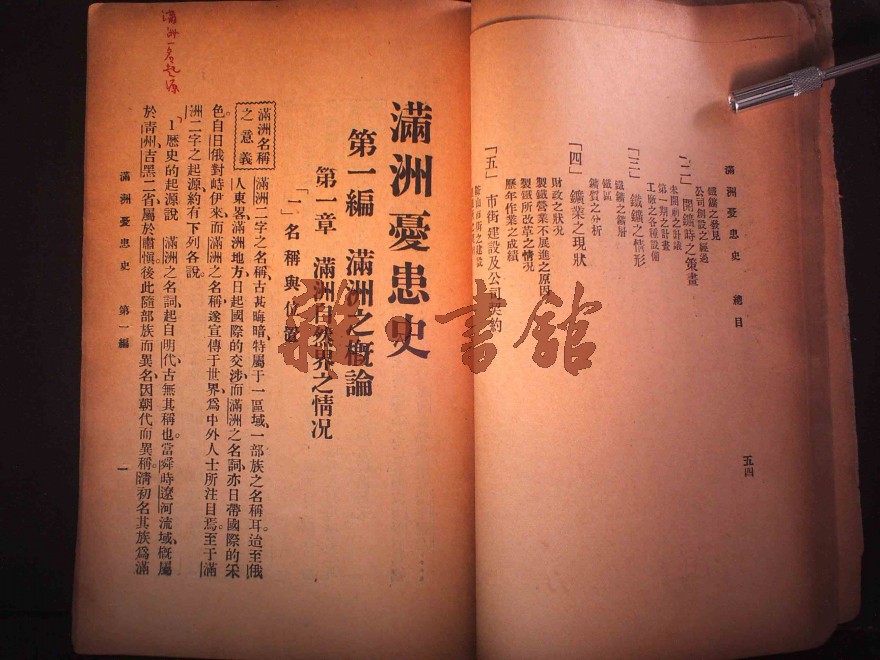 滿洲憂患史 總目
五四
鐵鑛之發見
公司創設之經過
「二」開鑛時之策畫
未開前之計議
第一期之計畫
工廠之各種設備
「三」鐵鑛之情形
鐵鑛之鑛層
鐵區
鑛質之分析
「四」鑛業之現狀
財政之狀况
製鐵營業不展進之原因
製鐵所改革之情况
歷年作業之成績
「五」市街建設及公司契約
鞍山市街之建設
滿洲憂患史
第一編 滿洲之概論
第一章 滿洲自然界之情况
「一」名稱與位置
滿洲名稱之意義
滿洲二字之名稱、古甚晦暗、特屬于一區域、一部族之名稱耳、迨至俄
人東畧、滿洲地方、日起國際的交涉、而滿洲之名詞、亦日帶國際的采
色、自日俄對峙伊來、而滿洲之名稱、遂宣傳于世界、爲中外人士所注目焉。至于滿
洲二字之起源、約有下列各說。
1 歷史的起源說 滿洲之名詞、起自明代、古無其稱也。當舜時遼河流域、概屬
於靑州、吉黑二省、屬於肅愼。後此隨部族而異名、因朝代而異稱。淸初名其族爲滿
滿洲憂患史 第一編
一
滿洲一名起源
雜·書館